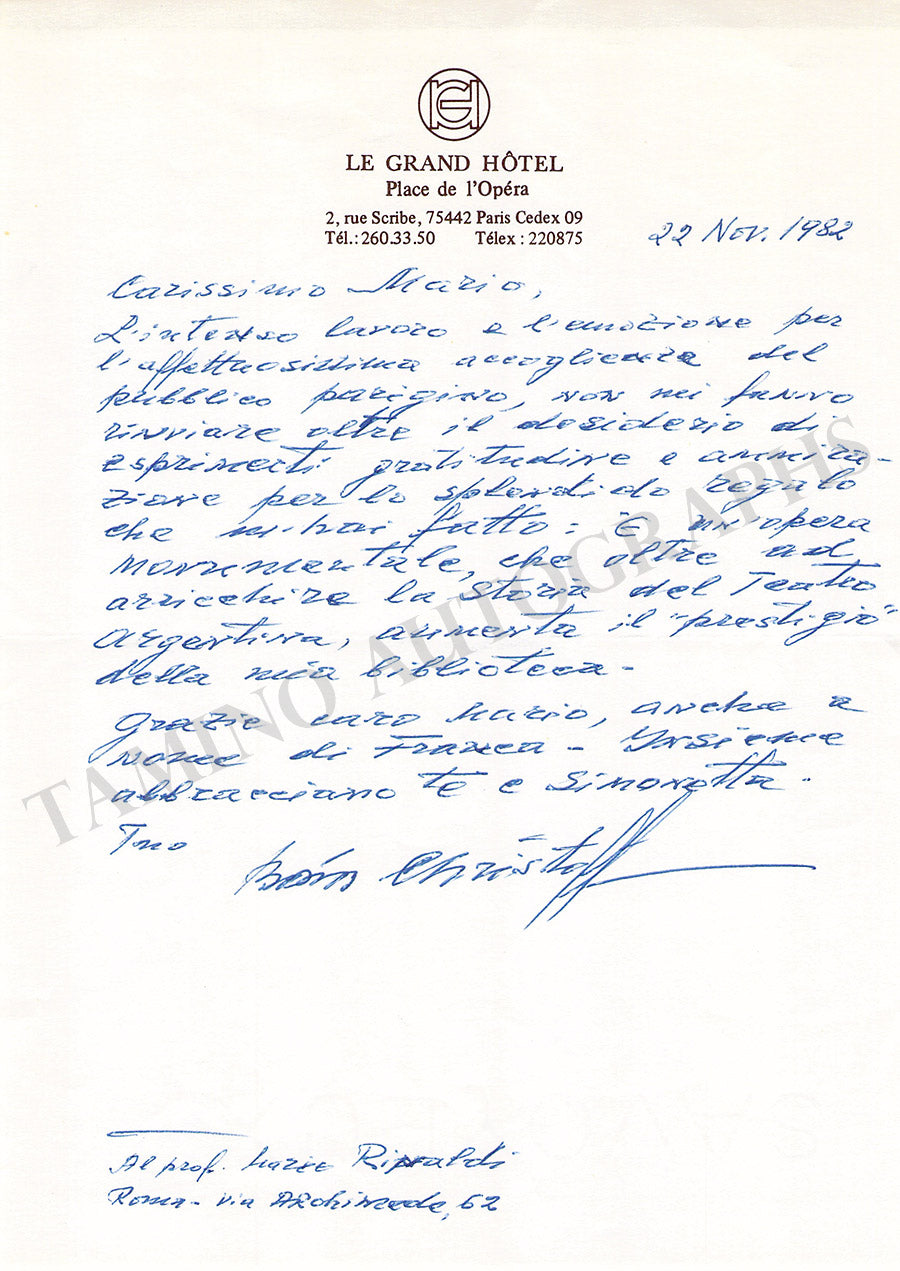 LE GRAND HÔTEL
Place de l'Opéra
2, rue Scribe, 75442 Paris Cedex 09
Tél.: 260.33.50 Télex : 220875
22 Nov. 1982
Carissimo Mario,
L'intenso lavoro e l'emozione per
l'affettuosissima accoglienza del
pubblico parigino, non mi fanno
rinviare oltre il desiderio di
esprimerti gratitudine e ammira-
zione per lo splendido regalo
che m'hai fatto: È un'opera
monumentale, che oltre ad
arricchire la Storia del Teatro
Argentina, aumenta il "prestigio"
della mia biblioteca -
Grazie caro Mario, anche a
nome di Franca - Insieme
abbracciamo te e Simonetta.
Tuo
Boris Christoff
Al prof. Mario Rinaldi
Roma - via Archimede, 62
TAMINO AUTOGRAPHS